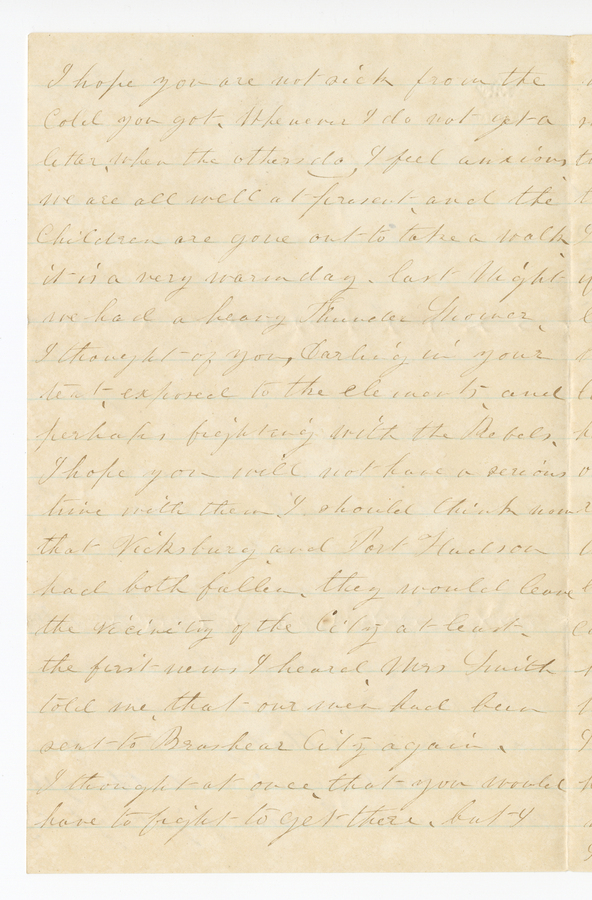 I hope you are not sick from the
Cold you got. Whenever I do not get a
letter, when the others do, I feel anxious
we are all well at present and the
Children are gone out to take a walk
it is a very warm day. last Night
we had a heavy Thunder Shower.
I thought of you, Darling in your
tent, exposed to the elements and
perhaps fighting with the Rebels.
I hope you will not have a serious
time with them I should think now
that Vicksburg and Port Hudson
had both fallen, they would leave
the vicinity of the City at least.
the first news I heard, Mrs Smith
told me, that our men had been
sent to Brashear City again.
I thought at once, that you would
have to fight to get there, but I